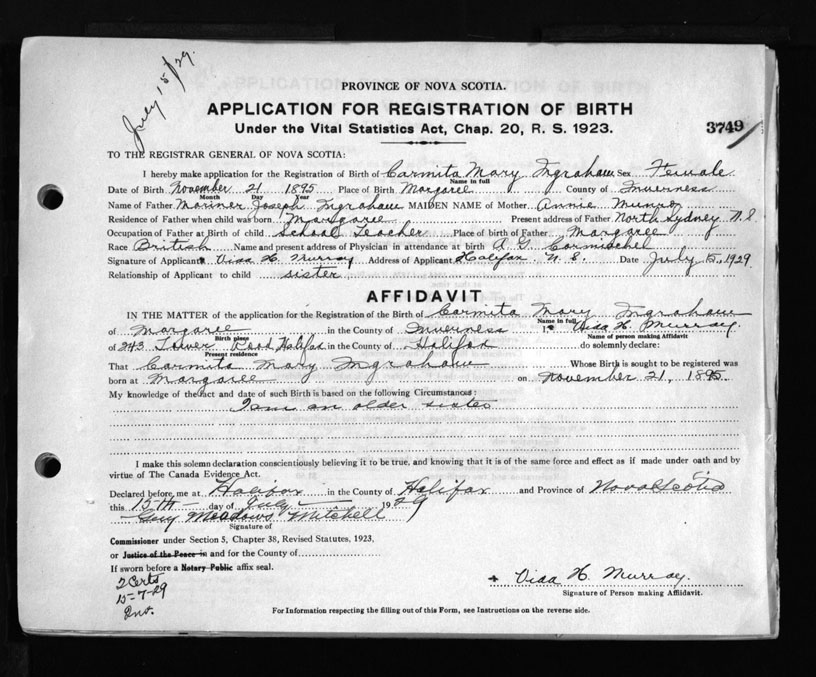 July 15/29.
PROVINCE OF NOVA SCOTIA.
APPLICATION FOR REGISTRATION OF BIRTH
Under the Vital Statistics Act, Chap. 20, R. S. 1923.
3749
TO THE REGISTRAR GENERAL OF NOVA SCOTIA:
I hereby make application for the Registration of Birth of Carmita Mary Ingraham Sex Female
Name in full
Date of Birth November 21 1895 Place of Birth Margaree County of Inverness
Month Day Year
Name of Father Mariner Joseph Ingraham MAIDEN NAME of Mother Annie Munro
Residence of Father when child was born Margaree Present address of Father North Sydney N S
Occupation of Father at Birth of child School Teacher Place of birth of Father Margaree
Race British Name and present address of Physician in attendance at birth A. G. Cormischel
Signature of Applicant Vida H. Murray Address of Applicant Halifax N. S. Date July 15, 1929
Relationship of Applicant to child sister
AFFIDAVIT
IN THE MATTER of the application for the Registration of the Birth of Carmita Mary Ingraham
Name in full
of Margaree in the County of Inverness I, Vida H. Murray.
Birth place Name of person making Affidavit
of 243 Tower Road Halifax in the County of Halifax do solemnly declare:
Present residence
That Carmita Mary Ingraham Whose Birth is sought to be registered was
born at Margaree on November 21, 1895.
My knowledge of the fact and date of such Birth is based on the following Circumstances:
I am an older sister
I make this solemn declaration conscientiously believing it to be true, and knowing that it is of the same force and effect as if made under oath and by
virtue of The Canada Evidence Act.
Declared before me at Halifax in the County of Halifax and Province of Nova Scotia
this 15th day of July 1929
Guy Meadows Mitchell
Signature of
Commissioner under Section 5, Chapter 38, Revised Statutes, 1923,
or Justice of the Peace in and for the County of
If sworn before a Notary Public affix seal.
2 Certs
15-7-29
Vida H. Murray.
Signature of Person making Affidavit.
For Information respecting the filling out of this Form, see Instructions on the reverse side.